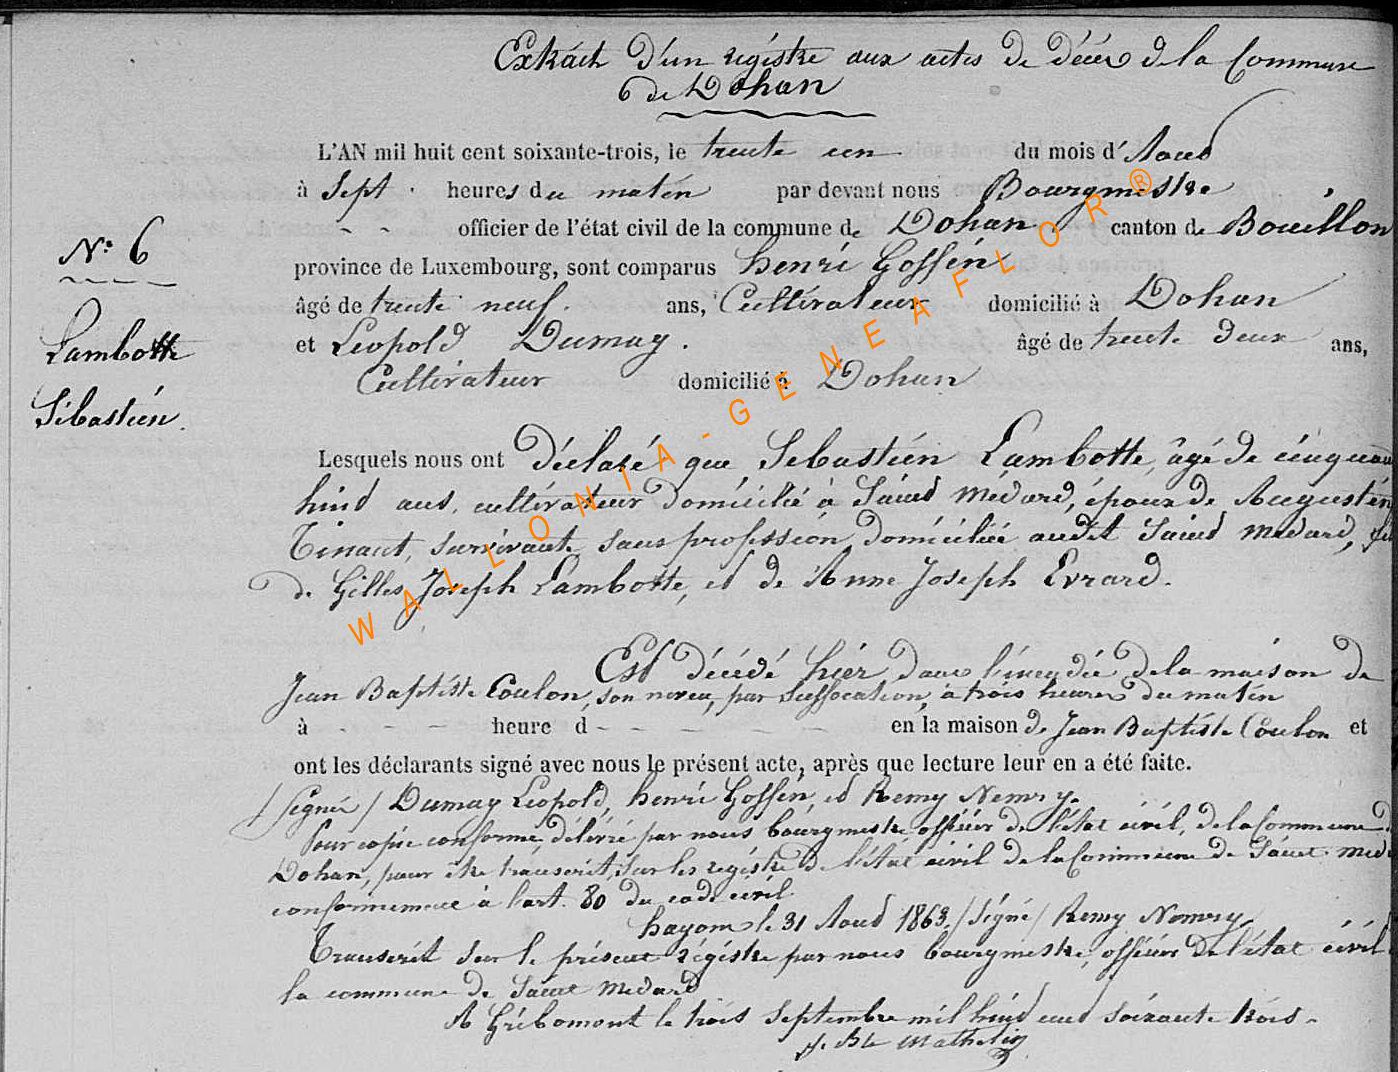 Extrait d'un régistre aux actes de décès de la Commune
de Dohan
L'AN mil huit cent soixante-trois, le trente un du mois d'Aoud
à Sept heures du matin par devant nous Bourgmestre
officier de l'état civil de la commune de Dohan, canton de Bouillon
N° 6
province de Luxembourg, sont comparus henri Goffin
âgé de trente neuf ans, Cultivateur domicilié à Dohan
Lambotte
et Léopold Dumay. âgé de trente deux ans,
Cultivateur domicilié à Dohan
Sébastién.
Lesquels nous ont Déclaré que Sébastién Lambotte, âgé de cinquante
huid ans, cultivateur domicilié à Saint Médard, époux de Augustine
Tinant, survivante, sans profession domiciliée audit Saint Médard, fils
de Gilles Joseph Lambotte, et de Anne Joseph Evrard.
Est décédé hier dans l'incendie de la maison de
Jean Baptiste Coulon, son neveu, par Suffocation, à trois heures du matin
à heure d en la maison de Jean Baptiste Coulon et
ont les déclarants signé avec nous le présent acte, après que lecture leur en a été faite.
/ Signé / Dumay Léopold, henri Goffin, et Remy Nemry.
Pour copie conforme, délivré par nous bourgmestre officier de l'état civil, de la Commune de
Dohan, pour être transcrit, sur les régistre de l'état civil de la Commune de Saint Méd
conformement à l'art. 80 du code civil
hayon le 31 Aoud 1863. / Signé / Remy Nemry
Transcrit sur le présent régistre par nous bourgmestre, officier de l'état civil
la commune de Saint Médard
A Gribomont le trois Septembre mil huid cent soixante trois.
J. Bte Mathelin
WALLONIA-GENEAFLOR®